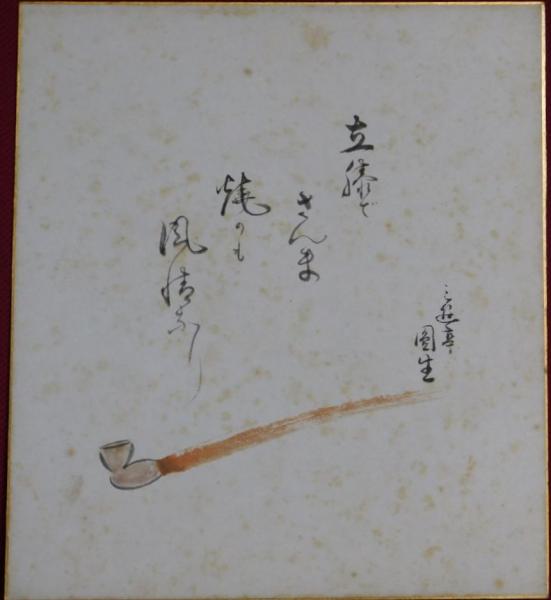 立膝で
さんま
焼くも
風情なり
三遊亭
圓生